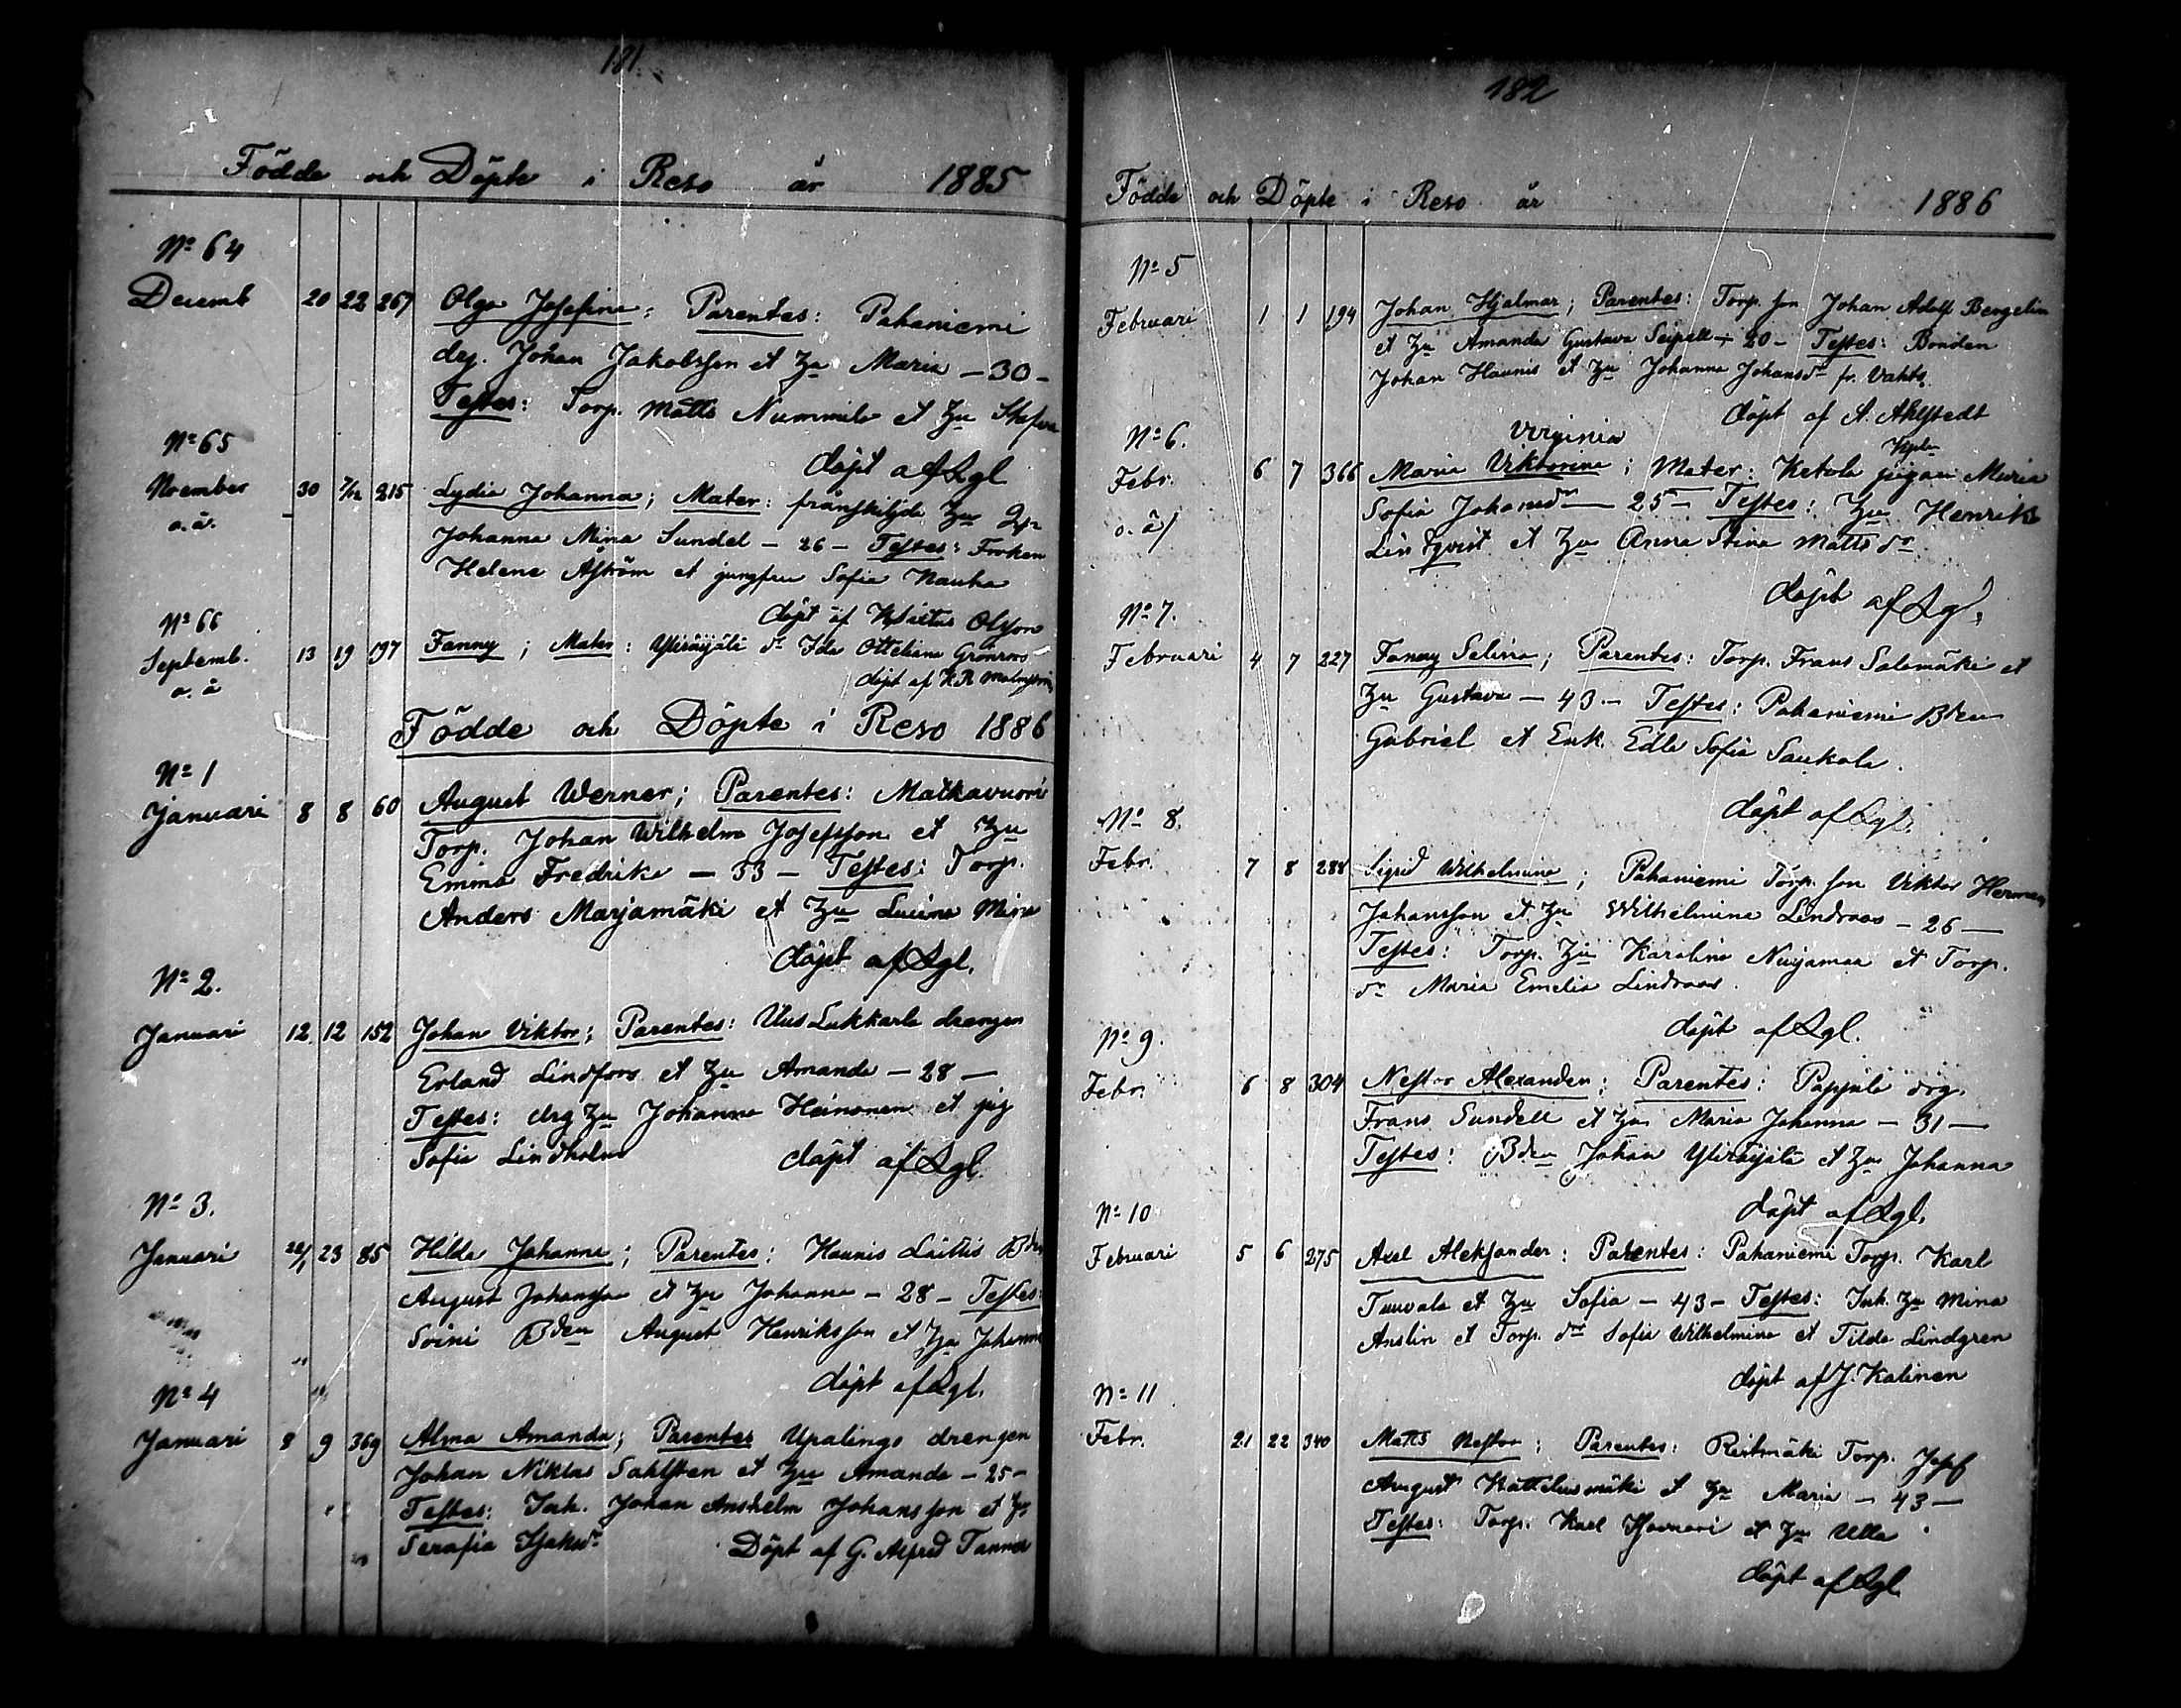 181
Födde och Döpte i Reso år 1885
No 64
Decemb 20 22 267 Olga Josefina; Parentes: Pahaniemi
drg. Johan Jakobsson et Hu Maria – 30 –
Testes: Torp. Matts Nummila et Hu Stefva
döpt af Lgl
No 65
November 30 7/12 215 Lydia Johanna; Mater: frånskilde
o. å. Johanna Mina Sundel – 26 – Testes: Fröken
Helene Åström et jungfru Sofia Nauha
döpt af Olsson
No 66
Septemb. 13 19 197 Fanny; Mater: Yliräijälä dr Ida Otteliana Grönroos
o. å döpt af K.R. Malmström
Födde och Döpte i Reso 1886
No 1
Januari 8 8 60 August Werner; Parentes: Matkavuori
Torp. Johan Wilhelm Josefsson et Hu
Emma Fredrika – 33 – Testes: Torp.
Anders Marjamäki et Hu Lucina Mina
döpt af Lgl.
No 2.
Januari 12 12 152 Johan Viktor; Parentes: Uus Lukkarla drengen
Erland Lindfors et Hu Amanda – 28 –
Testes: drg Hu Johanna Heinonen et pig
Sofia Lindholm döpt af Lgl.
No 3.
Januari 22/1 23 85 Hilda Johanna; Parentes: Haunis Laittis Bden
August Johansson et Hu Johanna – 28 – Testes:
Soini Bden August Henriksson et Hu Johanna
döpt af Lgl.
No 4
Januari 8 9 369 Alma Amanda; Parentes Upalingo drengen
Johan Niklas Sahlsten et Hu Amanda – 25 –
Testes: Inh. Johan Anshelm Johansson et Hu
Serafia Isaksdr Döpt af G. Alfred Tanner
182
Födde och Döpte i Reso år 1886
No 5
Februari 1 1 194 Johan Hjalmar; Parentes: Torp. son Johan Adolf Bergelin
et Hu Amanda Gustava Seipell – 20 – Testes: Bonden
Johan Haunis et Hu Johanna Johansdr fr. Vahto
döpt af A. Ahlstedt
No 6. Virginia
Febr. 6 7 366 Maria Viktorina; Mater: Ketola pigan Maria
o. å/ Sofia Johansdr – 25 – Testes: Hu Henrika
Lindqvist et Hu Anna Stina Matts dr
döpt af Lgl.
No 7.
Februari 4 7 227 Fanny Selina; Parentes: Torp. Frans Salomäki et
Hu Gustava – 43 – Testes: Pahaniemi Bden
Gabriel et Enk. Edla Sofia Saukola.
döpt af Lgl.
No 8.
Febr. 7 8 288 Sigrid Wilhelmina; Pahaniemi Torp. son Viktor Herman
Johansson et Hu Wilhelmina Lindroos – 26 –
Testes: Torp. Hu Karolina Nuijamaa et Torp.
dr Maria Emelia Lindroos.
döpt af Lgl.
No 9.
Febr. 6 8 304 Nestor Alexander; Parentes: Pappila drg.
Frans Sundell et Hu Maria Johanna – 31 –
Testes: Bden Johan Yliräijälä et Hu Johanna
döpt af Lgl.
No 10
Februari 5 6 275 Axel Aleksander: Parentes: Pahaniemi Torp. Karl
Tuuvala et Hu Sofia – 43 – Testes: Inh. Hu Mina
Anslin et Torp. dr Sofia Wilhelmina et Tilda Lindgren
döpt af J. Kalinen
No 11
Febr. 21 22 340 Matts Nestor; Parentes: Ristmäki Torp. Josef
August Kattelusmäki et Hu Maria – 43 –
Testes: Torp. Karl Isovuori et Hu Ulla
döpt af Lgl